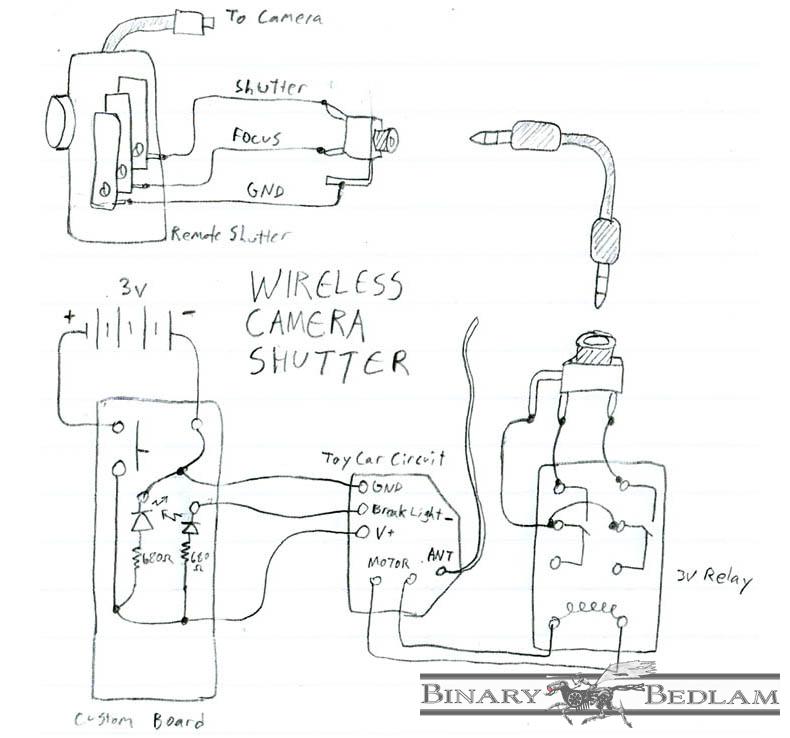 To Camera
Shutter
Focus
GND
Remote Shutter
3V
+ -
WIRELESS
CAMERA
SHUTTER
Toy Car Circuit
GND
Break Light -
V+
MOTOR
ANT
680Ω
680
Ω
3V Relay
Custom Board
BINARY BEDLAM